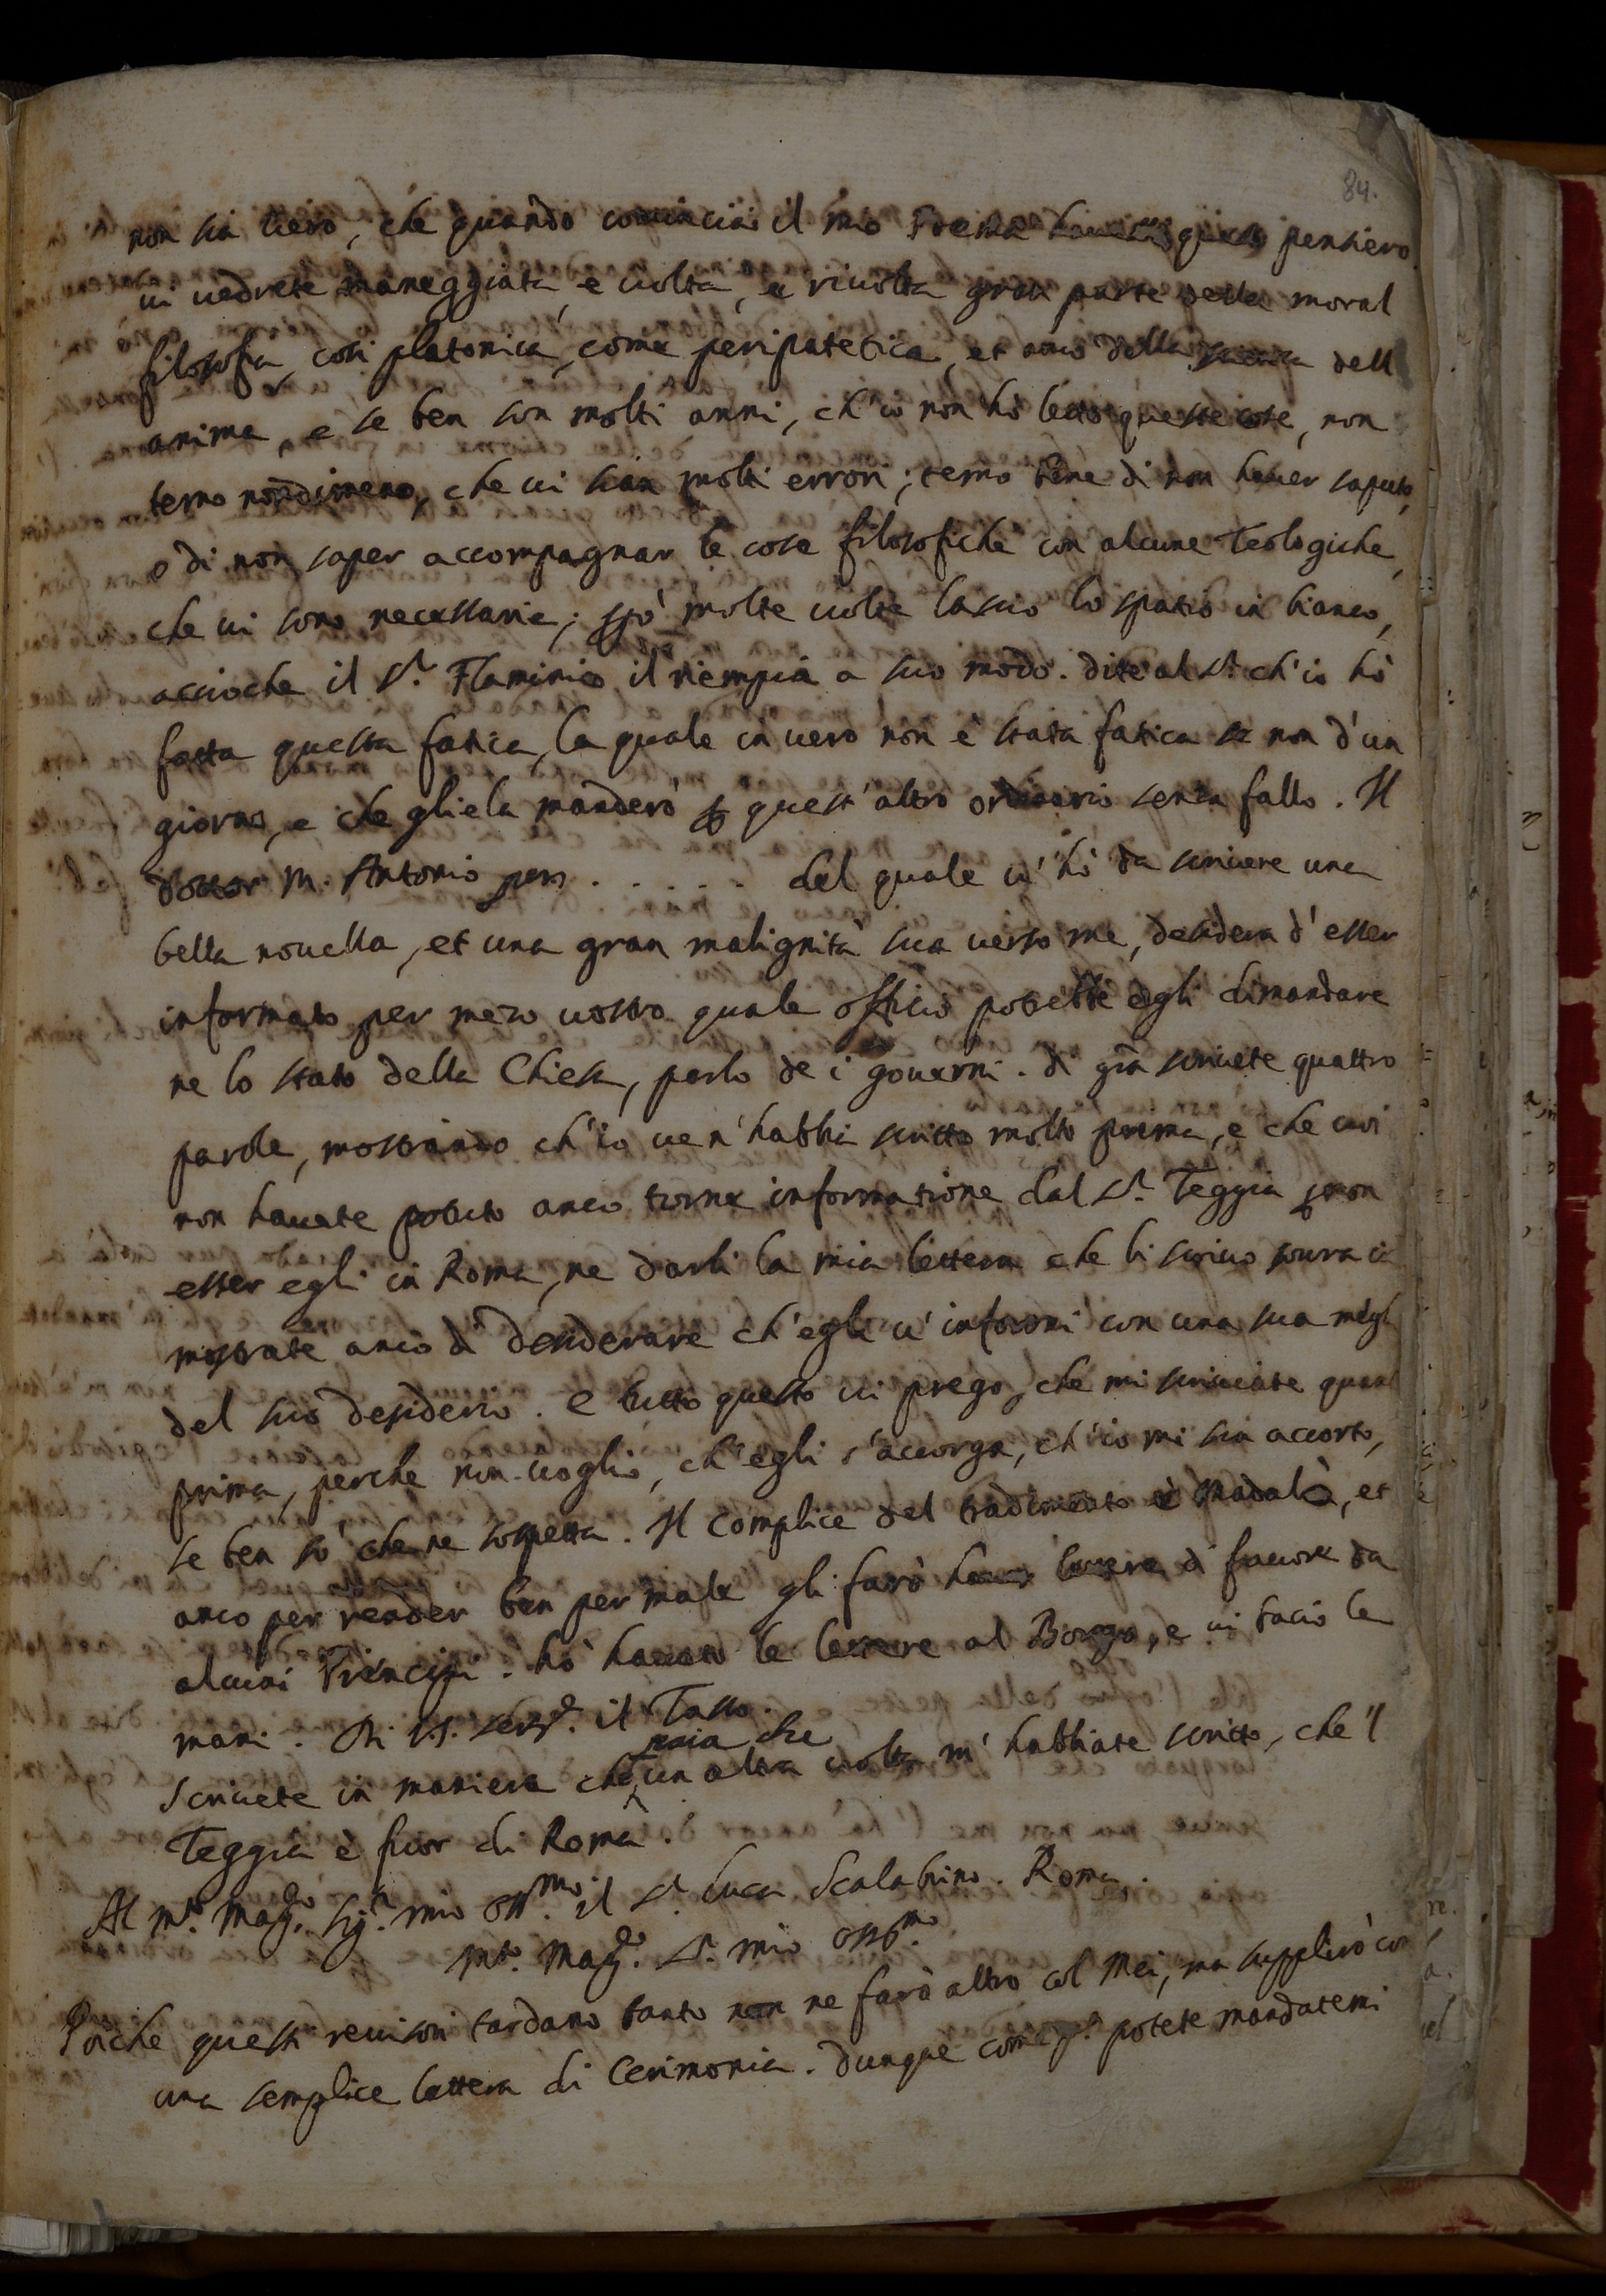 84.
non sia vero, che quando cominciai il mio Poema havessi questo pensiero
vi vedrete maneggiata, e volta, e rivolta gran parte della moral
filosofia, cosi platonica, come peripatetica, et anco della scienza dell
anima, e se ben son molti anni, ch'io non hò letto queste cose, non
temo nondimeno, che vi sian molti errori; temo bene di non haver saputo,
o di non saper accompagnar le cose filosofiche con alcune Teologiche,
che vi sono necessarie; però molte volte lascio lo spatio in bianco,
accioche il S.r Flaminio il riempia a suo modo. dite al S.r ch'io hò
fatta questa fatica, la quale in vero non è stata fatica se non d'un
giorno, e che gliela manderò per quest'altro ordinario senza fallo. Il
dottor M. Antonio . . . . . . del quale v'hò da scrivere una
bella novella, et una gran malignità sua verso me, desidera d'esser
informato per mezo vostro quale officio potesse egli dimandare
ne lo stato della Chiesa, parlo de i governi. di già scrivete quattro
parole, mostrando ch'io ve n'habbia scritto molto prima, e che voi
non havete potuto anco torne informatione dal S.r Teggia per non
esser egli in Roma, ne darli la mia lettera che li scrivo sovra ciò
mostrate anco di desiderare ch'egli v'informi con una sua megl
del suo desiderio. e tutto questo vi prego, che mi scriviate quan
prima, perche non voglio, ch'egli s'accorga, ch'io mi sia accorto,
se ben sò che ne sospetta. Il complice del tradimento è Madalò, et
anco per render ben per male gli farò haver lettere di favore da
alcuni Principi. hò havuto le lettere al Borgo, e vi bacio le
mani. Di V.S. ser.re il Tasso.
Scrivete in maniera che paia che un altra volta m'habbiate scritto, che 'l
Teggia è fuor di Roma.
Al m.to Mag.co Sig.r mio oss.mo il S.r Luca Scalabrino. Roma.
M.to Mag.co S.r mio oss.mo
Poiche questi revisori tardano tanto non ne farò altro col Mei, ma supplirò con
una semplice lettera di cerimonia. dunque come potete mandatemi